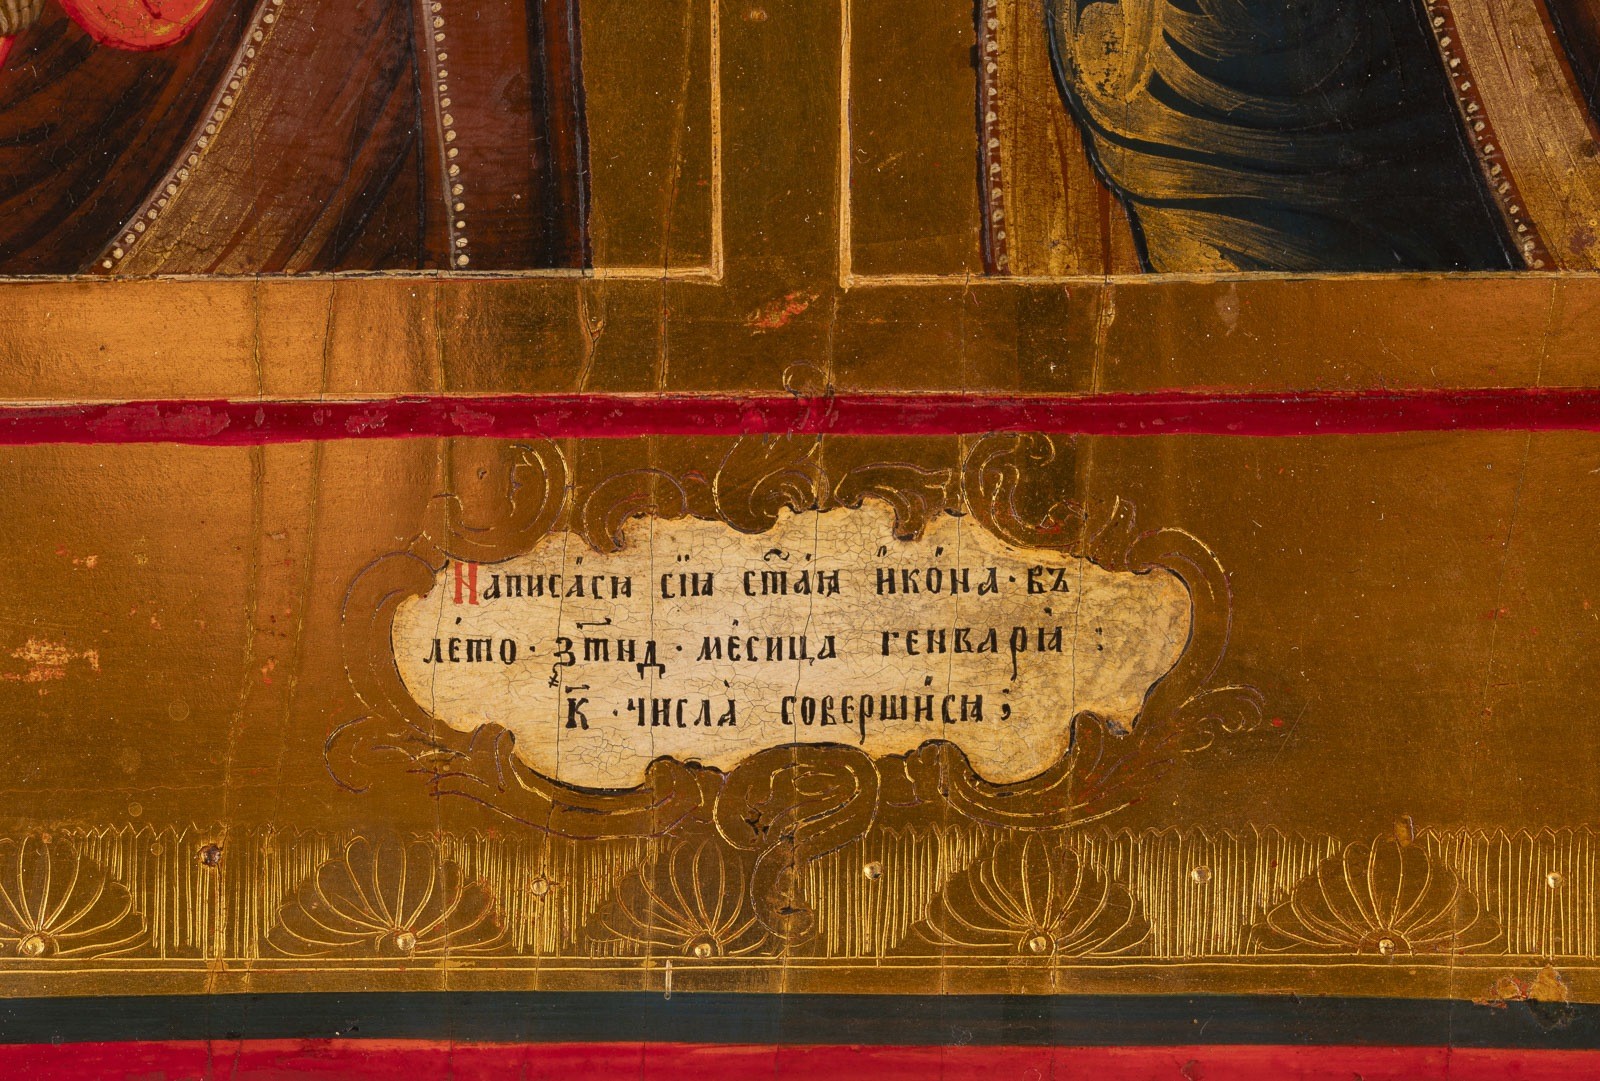 Написа́сѧ сїѧ ст҃а́ѧ и҆ко́на · въ
ле́то · ҂зт҃нд · ме́сица генвариѧ̀ :
к҃ · числа̀ соверши́сѧ ;